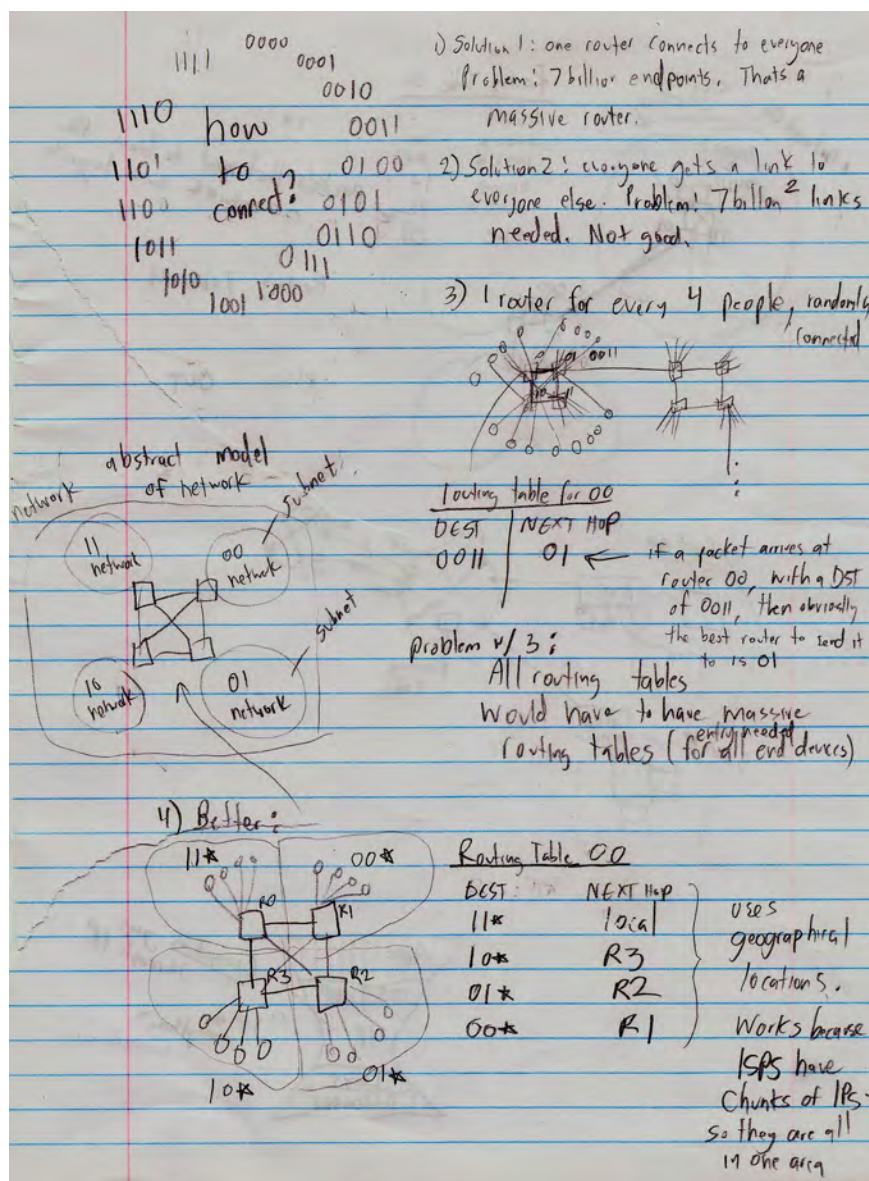 0000
1111
0001
0010
1110
how
0011
1101
to
0100
1100
connect?
0101
1011
0110
0111
1010
1001
1000
1) Solution 1: one router connects to everyone
Problem: 7 billion endpoints. Thats a
massive router.
2) Solution 2: everyone gets a link to
everyone else. Problem! 7 billon² links
needed. Not good.
3) 1 router for every 4 people, randomly
connected
01
0011
10
11
abstract model
of network
network
subnet
11
network
00
network
subnet
10
network
01
network
routing table for 00
DEST NEXT HOP
0011 01 ← if a packet arrives at
router 00, with a DST
of 0011, then obviously
the best router to send it
to is 01
problem w/ 3:
All routing tables
Would have to have massive
routing tables (entry needed for all end devices)
4) Better:
11*
00*
R0
R1
R3
R2
10*
01*
Routing Table 00
DEST: NEXT Hop
11* local
10* R3
01* R2
00* R1
uses
geographical
locations.
Works because
ISPS have
Chunks of IPs.
So they are all
in one area